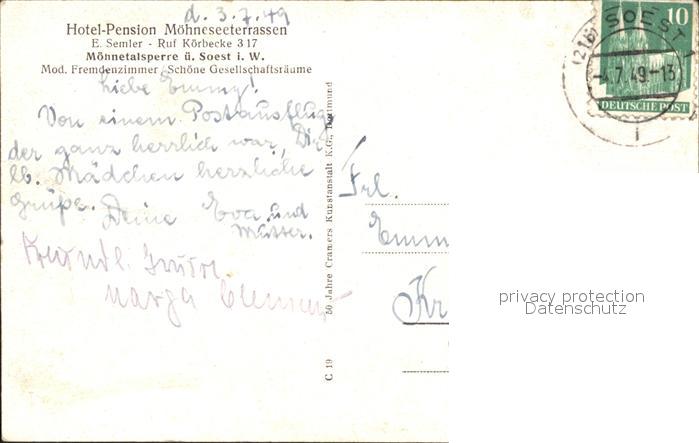 d. 3.7.49
Hotel-Pension Möhneseeterrassen
E. Semler - Ruf Körbecke 317
Möhnetalsperre ü. Soest i. W.
Mod. Fremdenzimmer / Schöne Gesellschaftsräume
Liebe Emmy!
Von einem Postausflug
der ganz herrlich war, Dir
lb. Mädchen herzliche
Grüße. Deine Eva und
Mutter.
Freundl. Grüße
Marga
50 Jahre Cramers Kunstanstalt K.G., Dortmund
C 19
Frl.
Emm
Kr
10
DEUTSCHE POST
(21b) SOEST 1
-4.7.49-13
privacy protection
Datenschutz